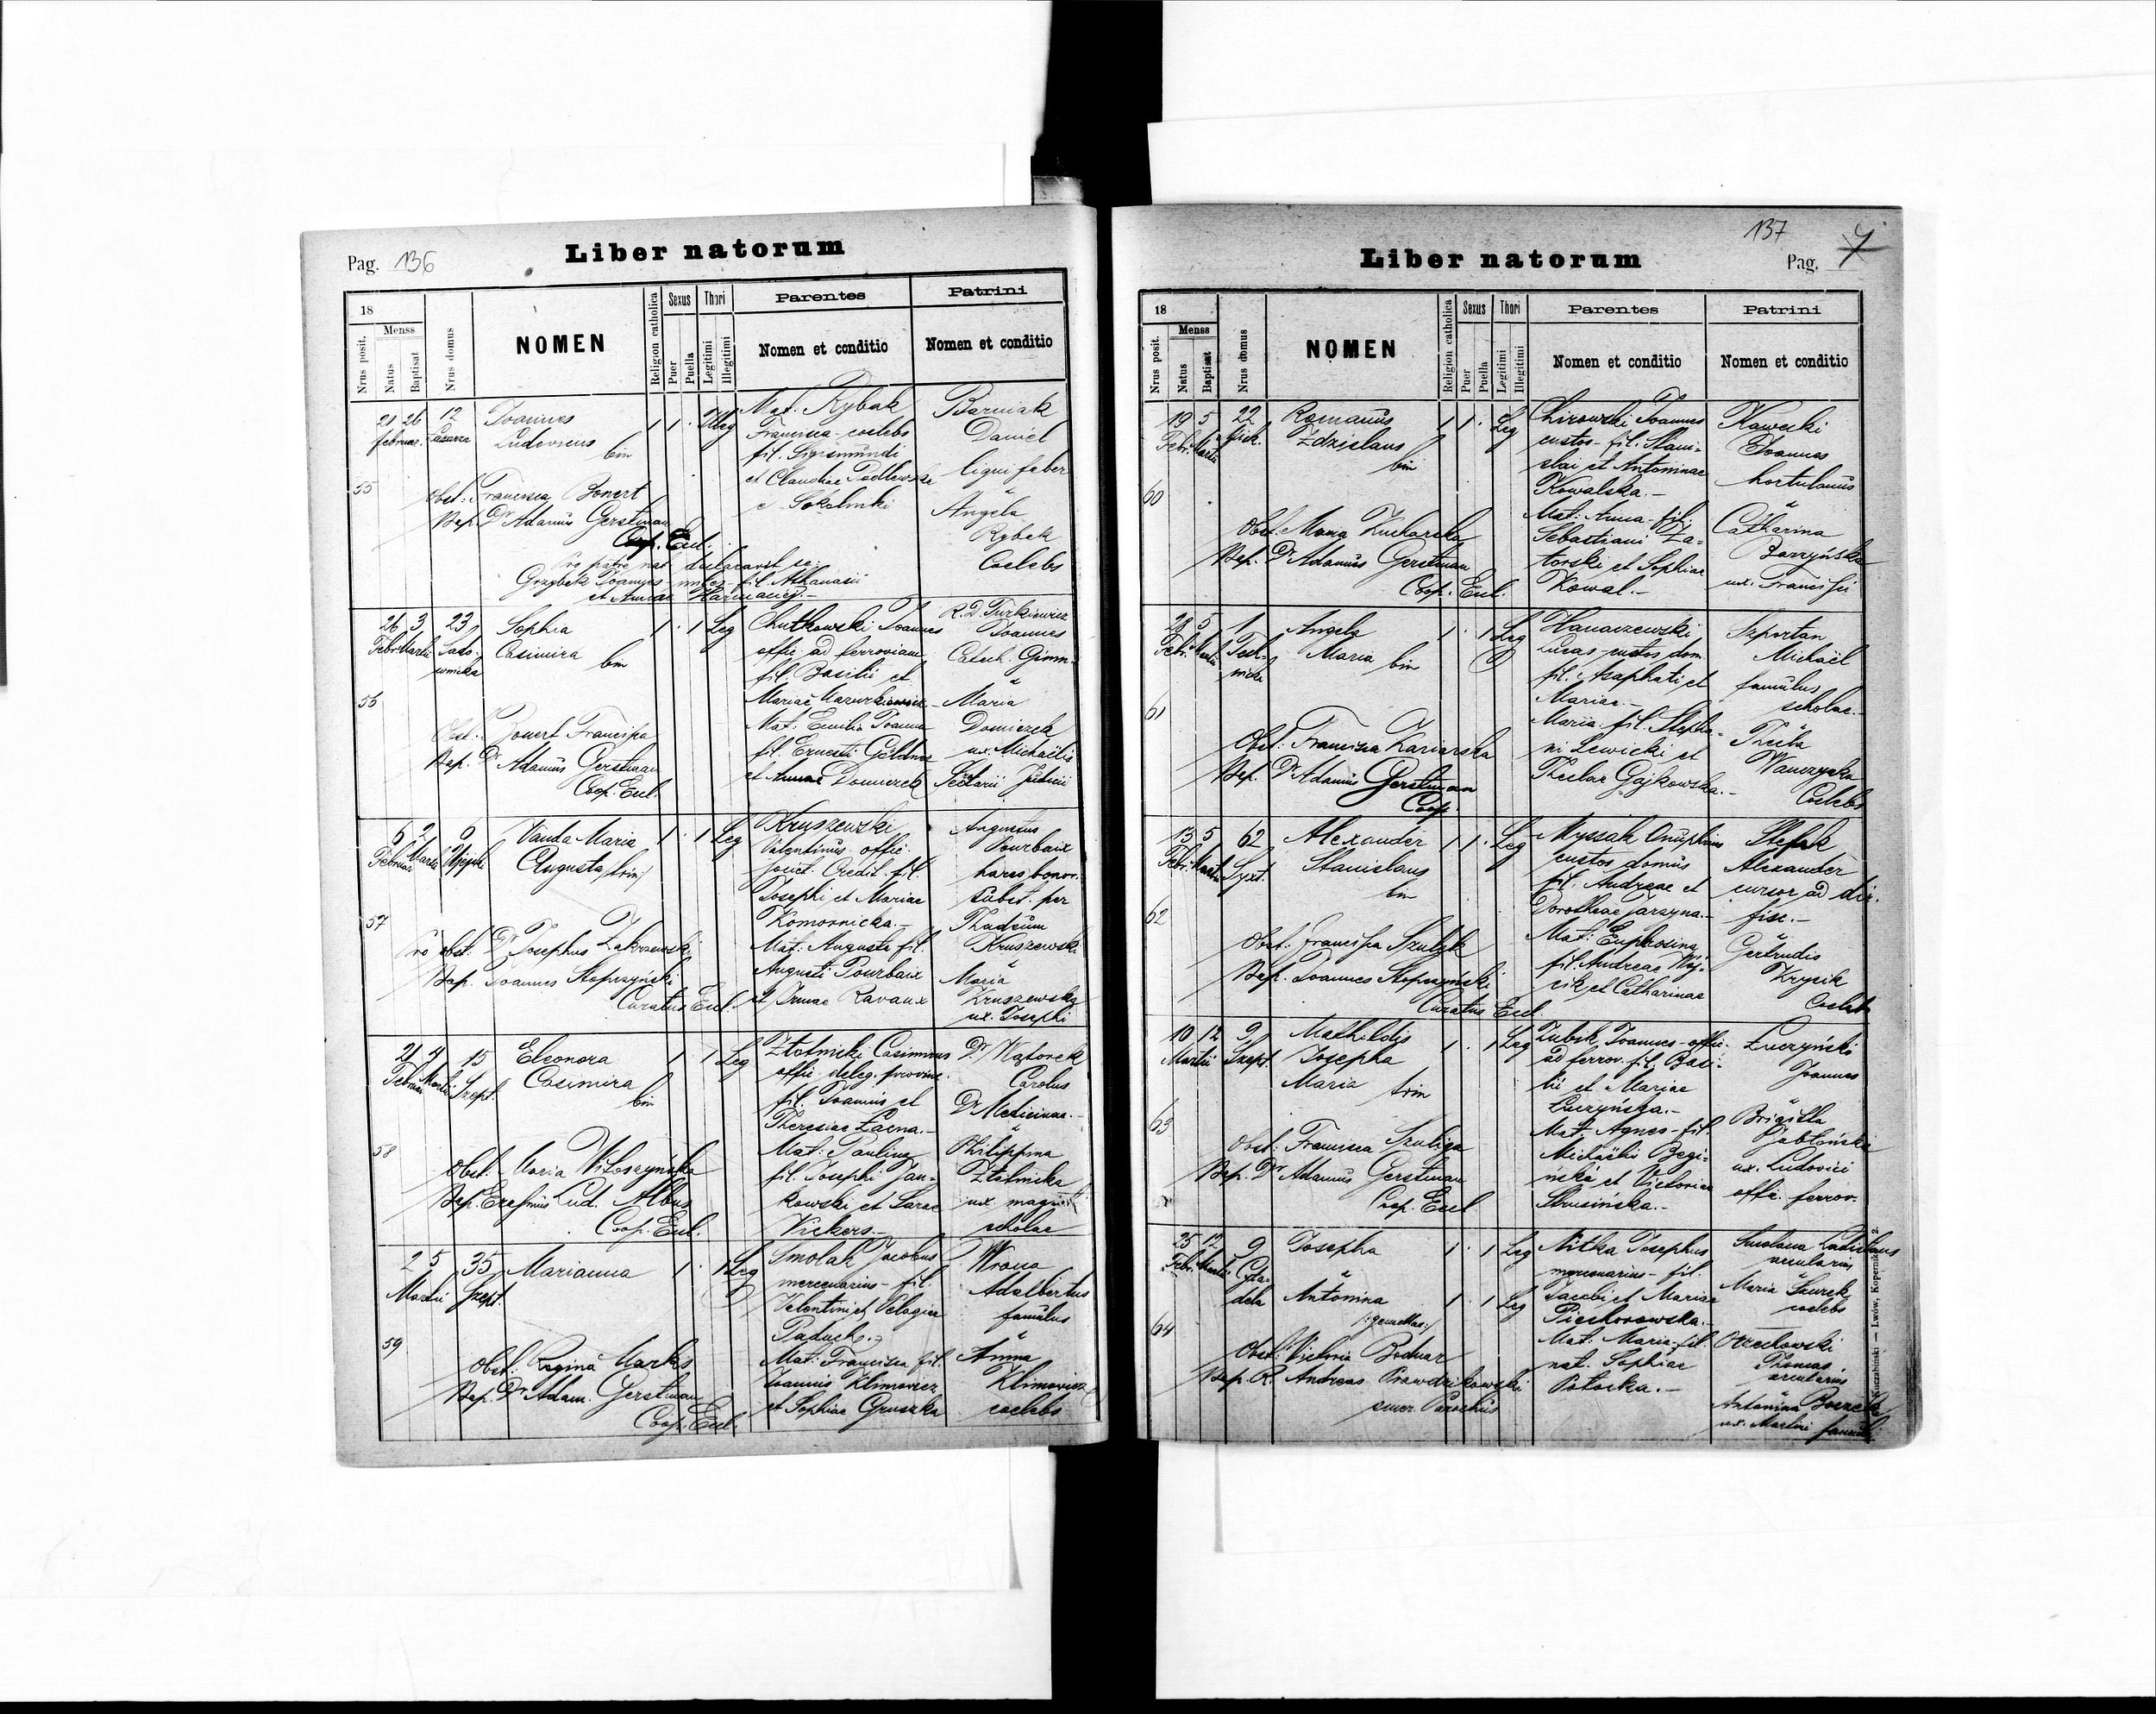 Pag. 136
Liber natorum
18
Menss
Nrus posit.
Natus
Baptisat
Nrus domus
NOMEN
Religion catholica
Sexus
Puer
Puella
Thori
Legitimi
Illegitimi
Parentes
Nomen et conditio
Patrini
Nomen et conditio
55
21 26
februar.
12
Joannes
Ludovicus
bin
1 1 . Illeg
Obst: Francisca Bonert
Bap. Dr Adamus Gerstman
Coop. Eccl.
Pro patre nat declaravit se
Grzybek Joannes miles fil. Athanasii
et Annae
Mat. Rybak
Francisca coelebs
fil. Sigismundi
et Claudiae Podlewska
e Sokolniki
Barniak
Daniel
ligni faber
Angela
Rybak
Coelebs
56
26 3
Febr. Martii
23
Sado-
wnicka
Sophia
Casimira
bin
1 . 1 Leg
Obst: Bonert Francisca
Bap. Dr Adamus Gerstman
Coop. Eccl.
Chutkowski Joannes
offic ad ferroviam
fil. Basilii et
Mariae Mazurkiewicz
Mat: Emilia Joanna
fil. Ernesti Göldner
et Annae Domiczek
R. D. Turkiewicz
Joannes
Catech. Gimn.
Maria
Domiczek
ux. Michaelis
57
6 2
Februar Martii
6
Vanda Maria
Augusta (trin)
1 . 1 Leg
Pro obst. Dr Josephus Zakrzewski
Bap. Joannes Stopczyński
Curatus Eccl.
Kruszewski
Valentinus offic.
societ. Credit. fil.
Josephi et Mariae
Komornicka.-
Mat: Augusta fil.
Augusti Pourbaix
et Irmae Ravaux
Augustus
Pourbaix
hares bonor.
subst. per
Thadeum
Kruszewski
Maria
Kruszewska
ux. Josephi
58
21 4
Februar Martii
15
Szept.
Eleonora
Casimira
bin
1 . 1 Leg
Obst. Maria Witoszyńska
Bap. Erasmus Lud. Albus
Coop. Eccl.
Złotnicki Casimirus
offic. deleg. provinc.
fil. Joannis et
Theresiae Łaena.-
Mat: Paulina
fil. Josephi Jan-
kowski et Sarae
Vickers.-
Dr Wątorek
Carolus
Dr Medicinae.-
Philippina
Złotnicka
ux magistri
scholae
59
2 5
Martii
35
Szept.
Marianna
1 . 1 Leg
Obst: Regina Marks
Bap. Dr Adam. Gerstman
Coop. Eccl.
Smolak Jacobus
mercenarius fil.
Valentini et Pelagiae
Paduch.-
Mat: Francisca fil.
Joannis Klimowicz
et Sophiae Gruszka
Wrona
Adalbertus
famulus
Anna
Klimowicz
coelebs
137
Liber natorum
Pag. 7
18
Menss
Nrus posit.
Natus
Baptisat
Nrus domus
NOMEN
Religion catholica
Sexus
Puer
Puella
Thori
Legitimi
Illegitimi
Parentes
Nomen et conditio
Patrini
Nomen et conditio
60
19 5
Febr. Martii
22
Romanus
Zdzislaus
bin
1 1 . Leg
Obst: Maria Kucharska
Bap. Dr Adamus Gerstman
Coop. Eccl.
Chirowski Joannes
custos - fil. Stani-
slai et Antoninae
Kowalska.-
Mat: Anna - fil.
Sebastiani Za-
torski et Sophiae
Kowal.-
Kawecki
Joannes
hortulanus
Catharina
Barzyńska
ux. Francisci
61
28 5
Febr. Martii
1
Tech-
nicka
Angela
Maria bin
1 . 1 Leg
Obst: Francisca Kaniarska
Bap. Dr Adamus Gerstman
Coop.
Hanaczewski
Lucas custos dom.
fil. Asaphati et
Mariae.-
Maria fil. Stepha-
ni Lewicki et
Theclae Gajkowska.-
Szportan
Michaël
famulus
scholae.-
Thecla
Coelebs
62
13 5
Febr. Martii
62
Syxt.
Alexander
Stanislaus
bin
1 1 . Leg
Obst: Francisca Szulyk
Bap. Joannes Stopczyński
Curatus Eccl
Myssak Onuphrius
custos domus
fil. Andreae et
Dorotheae Jarzyna.-
Mat: Euphrosina
fil. Andreae Wój-
cik et Catharinae
Stefak
Alexander
cursor ad dir.
fisc.-
Gertrudis
Krycik
Coeleb
63
10 12
Martii
9
Szept.
Mathildis
Josepha
Maria trin
1 . 1 Leg
Obst: Francisca Szuliga
Bap. Dr Adamus Gerstman
Coop. Eccl
Zubik Joannes - offic.
ad ferrov. fil. Basi-
lii et Mariae
Łuczyńska.-
Mat: Agnes - fil.
Michaëlis Begi-
ński et Victoriae
Strusińska.-
Łuczyński
Joannes
Brigitta
Jabłońska
ux. Ludovici
offic. ferrov.
64
25 12
Febr. Martii
9
Cyta-
dela
Josepha
1 . 1 Leg
Antonina
1 . 1 Leg
/:gemellae:/
Obst: Victoria Bodnar
Bap. R. Andreas Prawdzikowski
emer. Parochus
Nitka Josephus
mercenarius - fil.
Jacobi et Mariae
Piechorowska.-
Mat: Maria - fil.
nat. Sophiae
Potocka.-
Smolana Ladislaus
arcularius
Maria Saurek
coelebs
Orzechowski
Thomas
arcularius
Antonina
ux. Martini famuli